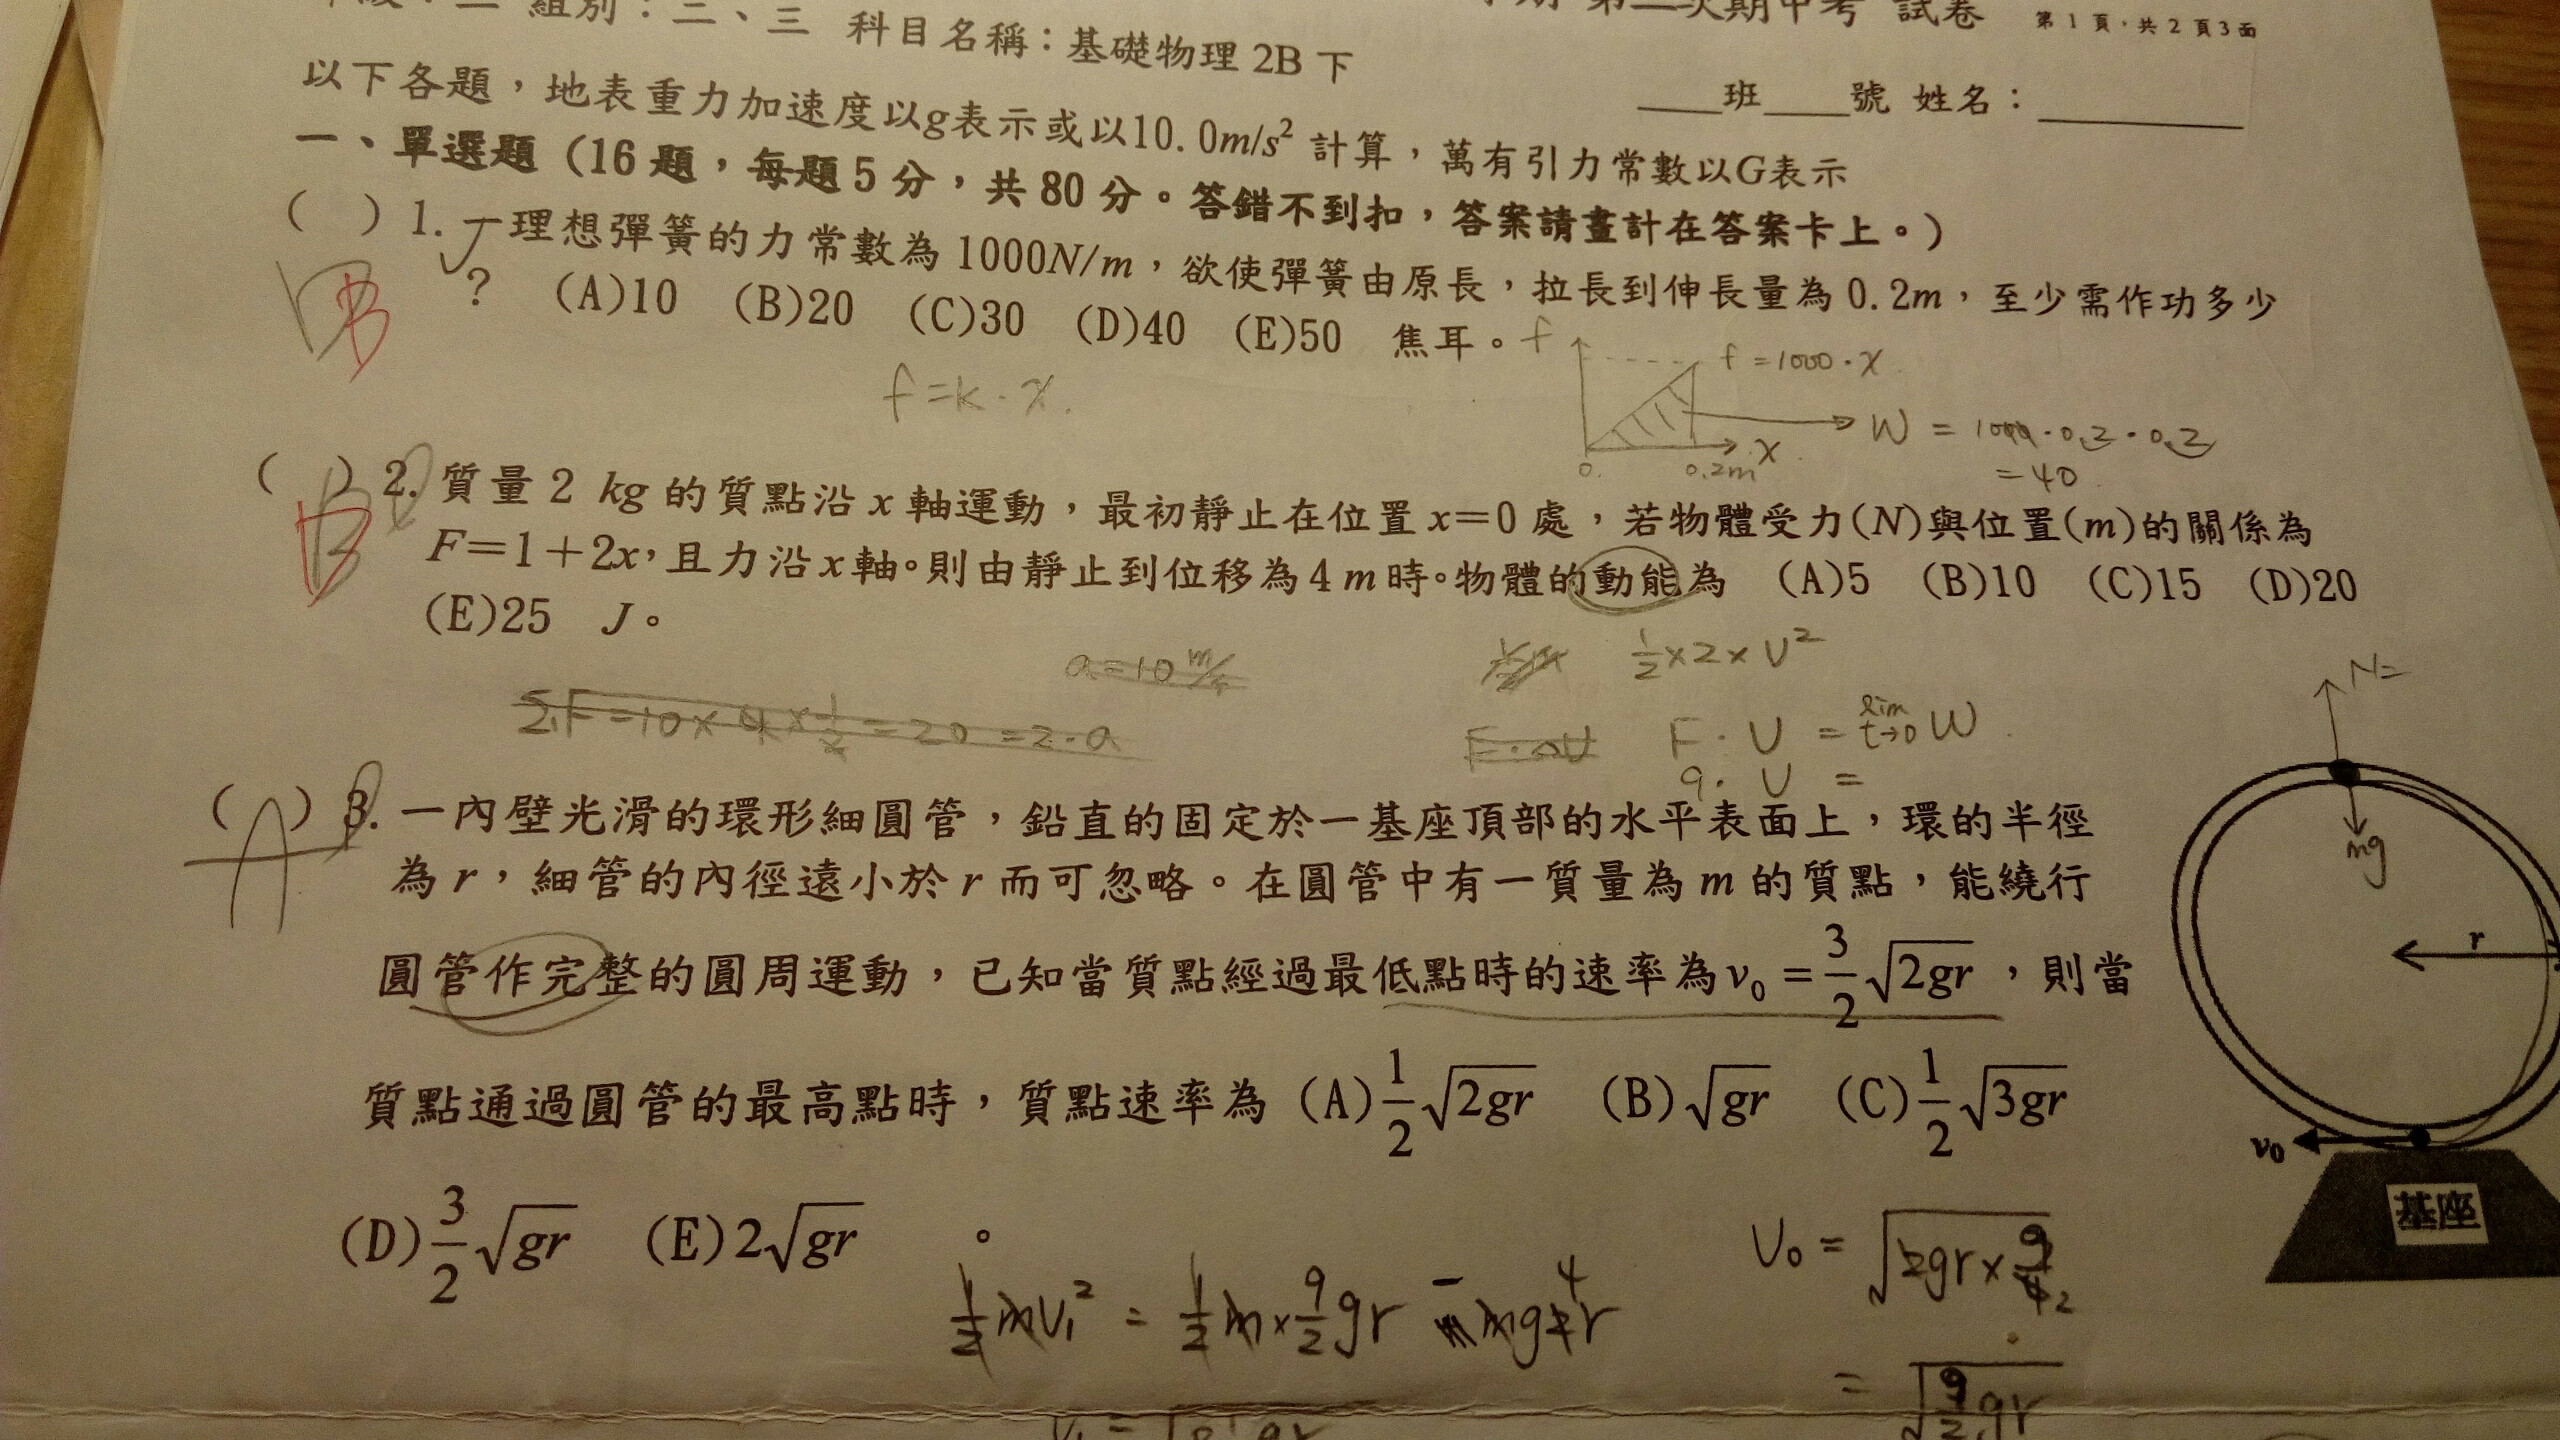 組別：三、三 科目名稱：基礎物理 2B 下
期 第二次期中考 試卷 第 1 頁，共 2 頁 3 面
____班____號 姓名：__________
以下各題，地表重力加速度以g表示或以10.0m/s² 計算，萬有引力常數以G表示
一、單選題（16 題，每題 5 分，共 80 分。答錯不到扣，答案請畫計在答案卡上。）
（ ）1. 一理想彈簧的力常數為 1000N/m，欲使彈簧由原長，拉長到伸長量為 0.2m，至少需作功多少
？ (A)10 (B)20 (C)30 (D)40 (E)50 焦耳。
B
f
f = 1000 · x
f = k · x.
W = 1000 · 0.2 · 0.2
= 40
0. 0.2m x
（ ）2. 質量 2 kg 的質點沿 x 軸運動，最初靜止在位置 x＝0 處，若物體受力(N)與位置(m)的關係為
F＝1＋2x，且力沿 x 軸。則由靜止到位移為 4 m 時。物體的動能為 (A)5 (B)10 (C)15 (D)20
(E)25 J。
D
a = 10 m/s
½ × 2 × V²
ΣF = 10 × 4 × ½ = 20 = 2 · a
F · ΔU
F · U = lim t→0 W
9 · U =
N=
mg
（ ）3. 一內壁光滑的環形細圓管，鉛直的固定於一基座頂部的水平表面上，環的半徑
A
為 r，細管的內徑遠小於 r 而可忽略。在圓管中有一質量為 m 的質點，能繞行
圓管作完整的圓周運動，已知當質點經過最低點時的速率為 v₀ = 3/2 √2gr ，則當
質點通過圓管的最高點時，質點速率為 (A) 1/2 √2gr (B) √gr (C) 1/2 √3gr
(D) 3/2 √gr (E) 2√gr 。
r
v₀
基座
U₀ = √2gr × 9/4 2
½ m V₁² = ½ m × 9/2 gr − mg 4r
= √9/2 gr